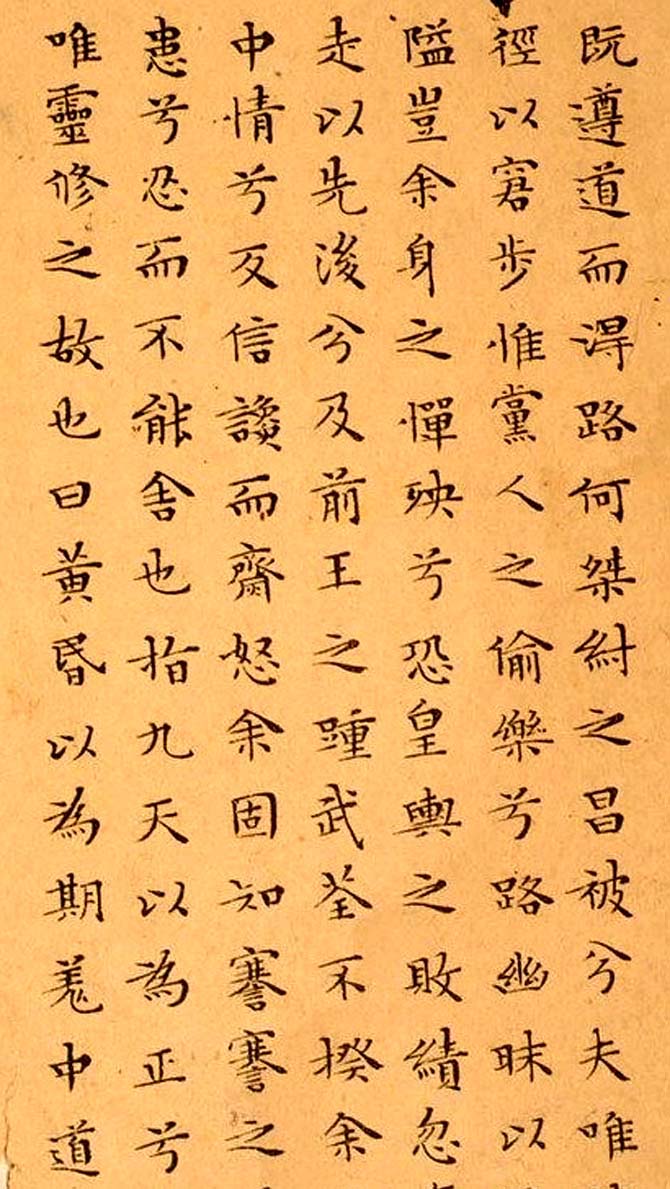 既遵道而得路何桀紂之昌被兮夫唯
徑以窘步惟黨人之偷樂兮路幽昧以
隘豈余身之憚殃兮恐皇輿之敗績忽
走以先後兮及前王之踵武荃不揆余
中情兮反信讒而齋怒余固知謇謇之
患兮忍而不能舍也指九天以為正兮
唯靈修之故也曰黃昏以為期羌中道